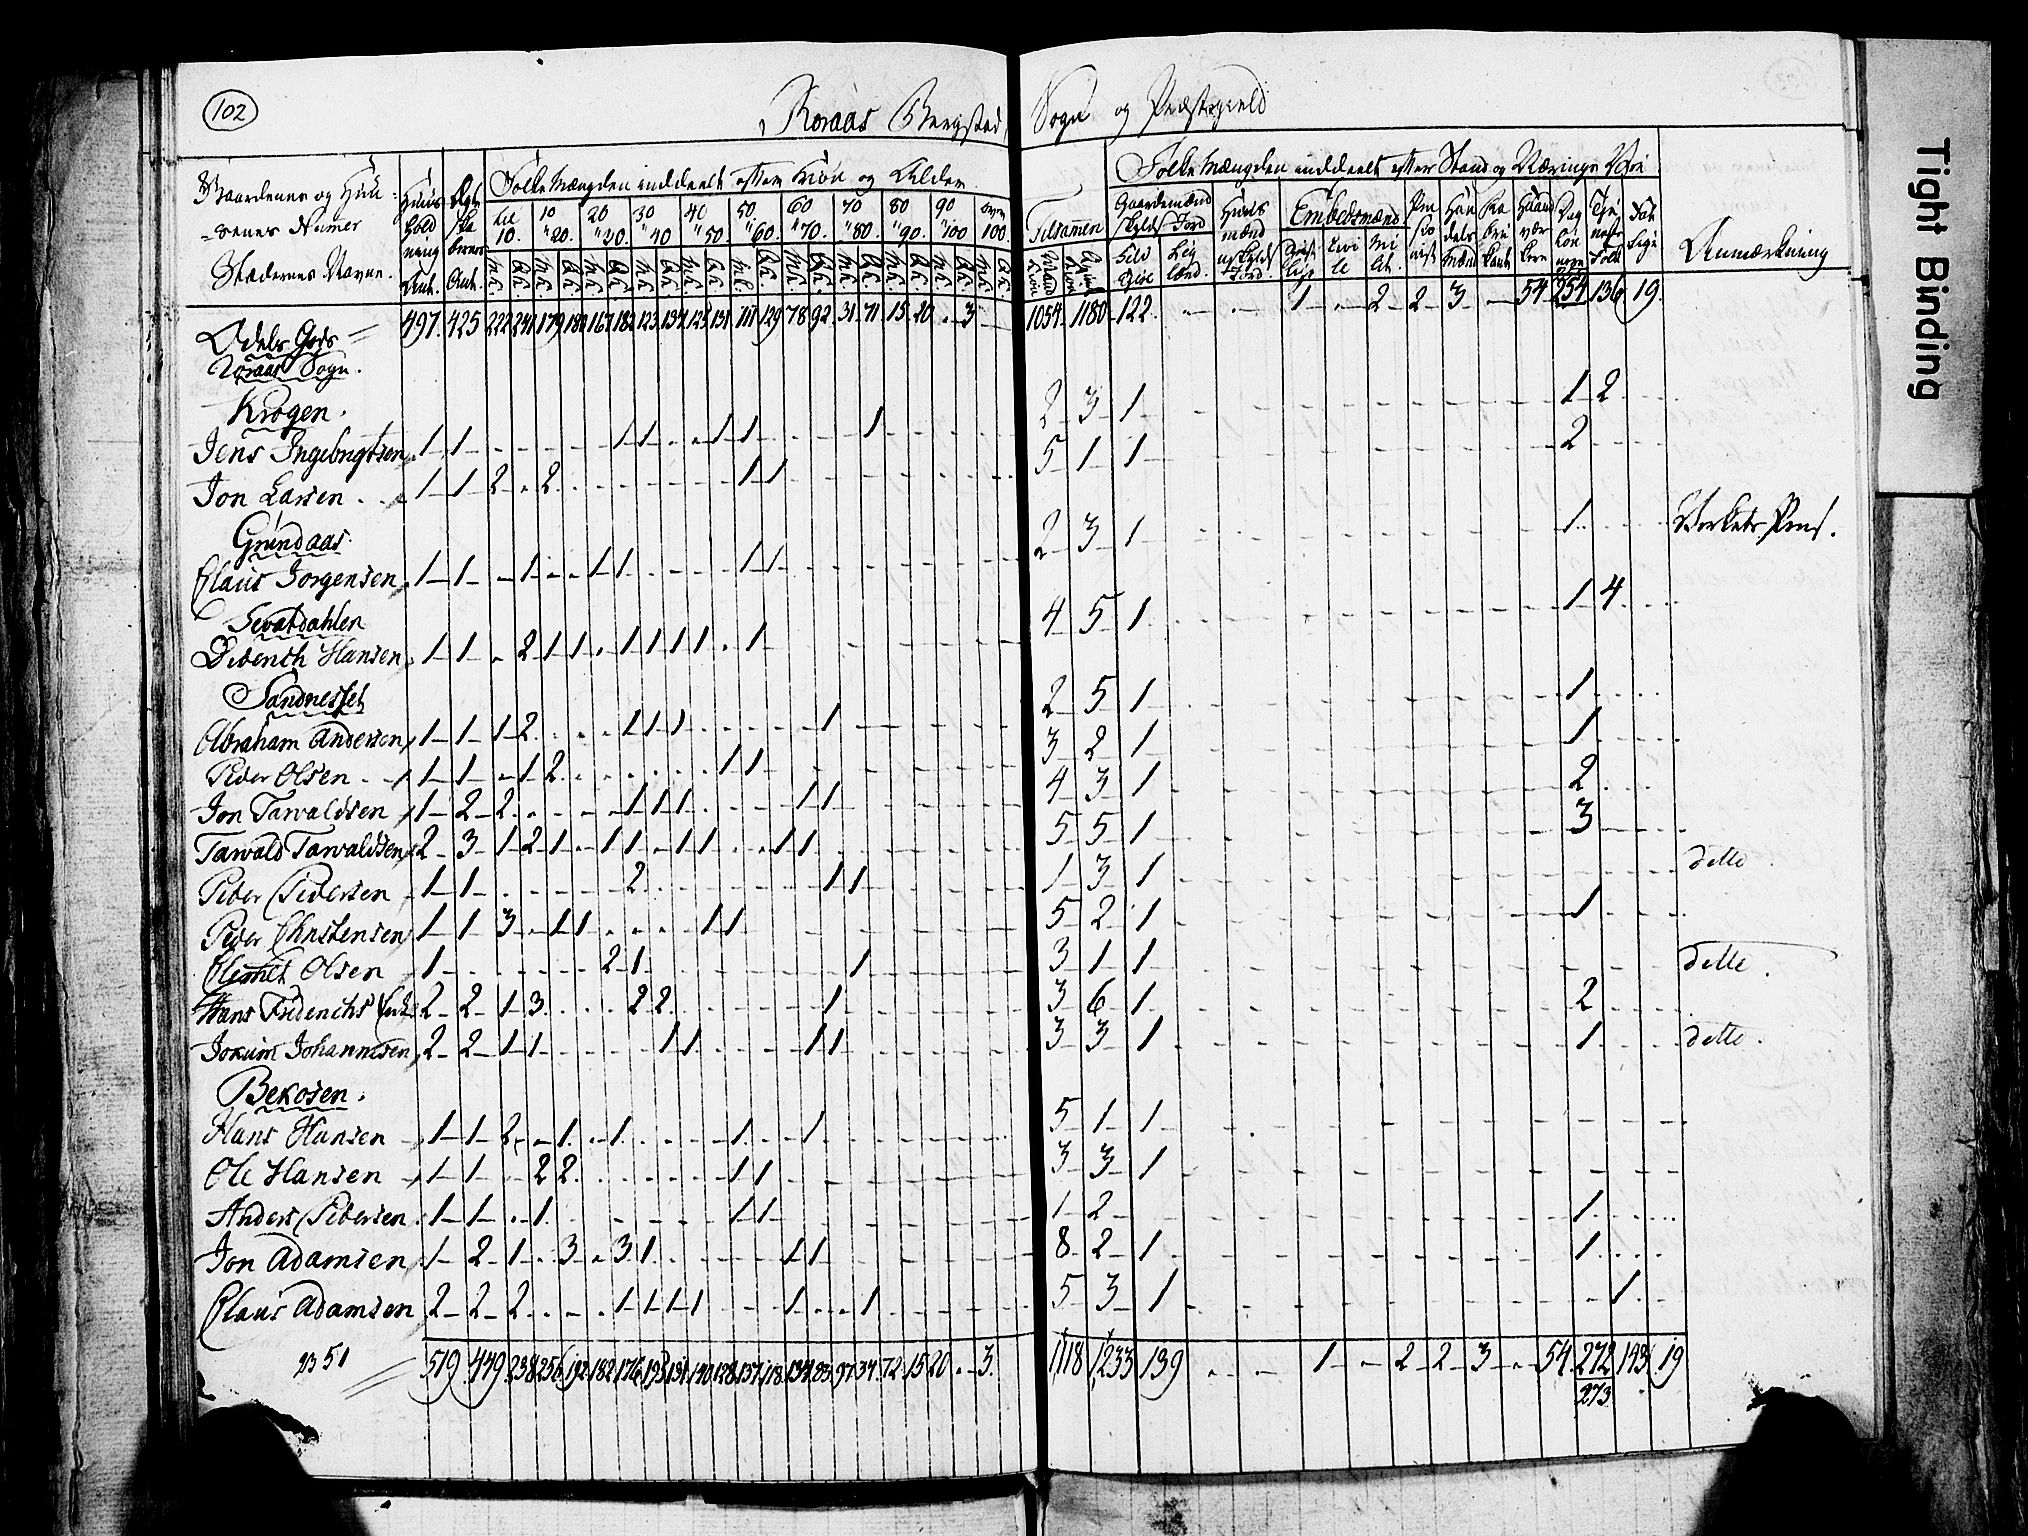 102
Roraas Bergstad Sogn og Præstegield
Gaardenes og Huu-
senes Numer
Stædernes Navne.
Huus
hold
ning
Ant.
Ægte
ska
berns
Ant.
Folke Mængden inddeelt efter Kiøn og Alder
til 10. 10 " 20. 20 " 30. 30 " 40 40 " 50 50 " 60. 60 " 70. 70 " 80. 80 " 90. 90 " 100 over 100.
Tilsamen
Folke Mængden inddeelt efter Stand og Nærings Vei
Gaardemænd Huus mænd Embedsmænd
Anmærkning
Odels Gods 497. 425 222 241 179 182 167 182 123 134 125 131 111 129 78 92 31 71 15 20 . 3 1054 1180 122 1 2 2 3 54 254 136 19.
Roraas Sogn.
Krogen.
Jens Ingebrigtsen 1 1 1 1 1 1 1 2 3 1 1 2
Jon Larsen 1 1 2 2 1 1 5 1 1 2
Grundaas
Claus Jorgensen 1 1 1 1 1 1 1 2 3 1 1 Verkets Pens.
Sevatdahlen
Diderich Hansen 1 1 2 1 1 1 1 1 1 1 4 5 1 1 4
Sandnesset
Abraham Andersen 1 1 1 2 1 1 1 1 2 5 1 1
Peder Olsen 1 1 1 2 1 1 3 2 1 1
Jon Tarvaldsen 1 2 2 1 1 1 1 1 4 3 1 2
Tarvald Tarvaldsen 2 3 1 2 1 1 1 1 1 1 1 5 5 1 3
Peder Pedersen 1 1 2 1 1 1 3 1 dette.
Peder Christensen 1 1 3 1 1 1 1 5 2 1 1
Clemet Olsen 1 2 1 1 3 1 1 dette.
Hans Fridrichs 2 2 1 3 2 2 1 3 6 1 2
Jokum Johannesen 2 2 1 1 1 1 1 1 3 3 1 1 dette.
Bekosen.
Hans Hansen 1 1 2 1 1 1 1 5 1 1
Ole Hansen 1 1 2 2 1 1 3 3 1
Anders Pedersen 1 1 1 1 1 1 2 1
Jon Adamsen 1 2 1 3 3 1 1 1 8 2 1 1
Claus Adamsen 2 2 2 1 1 1 1 1 1 5 3 1 1
519 449 238 256 192 182 176 193 131 140 128 137 118 134 83 97 34 72 15 20 . 3. 1118 1233 139 1 2 2 3 54 272 143 19
273
Tight Binding